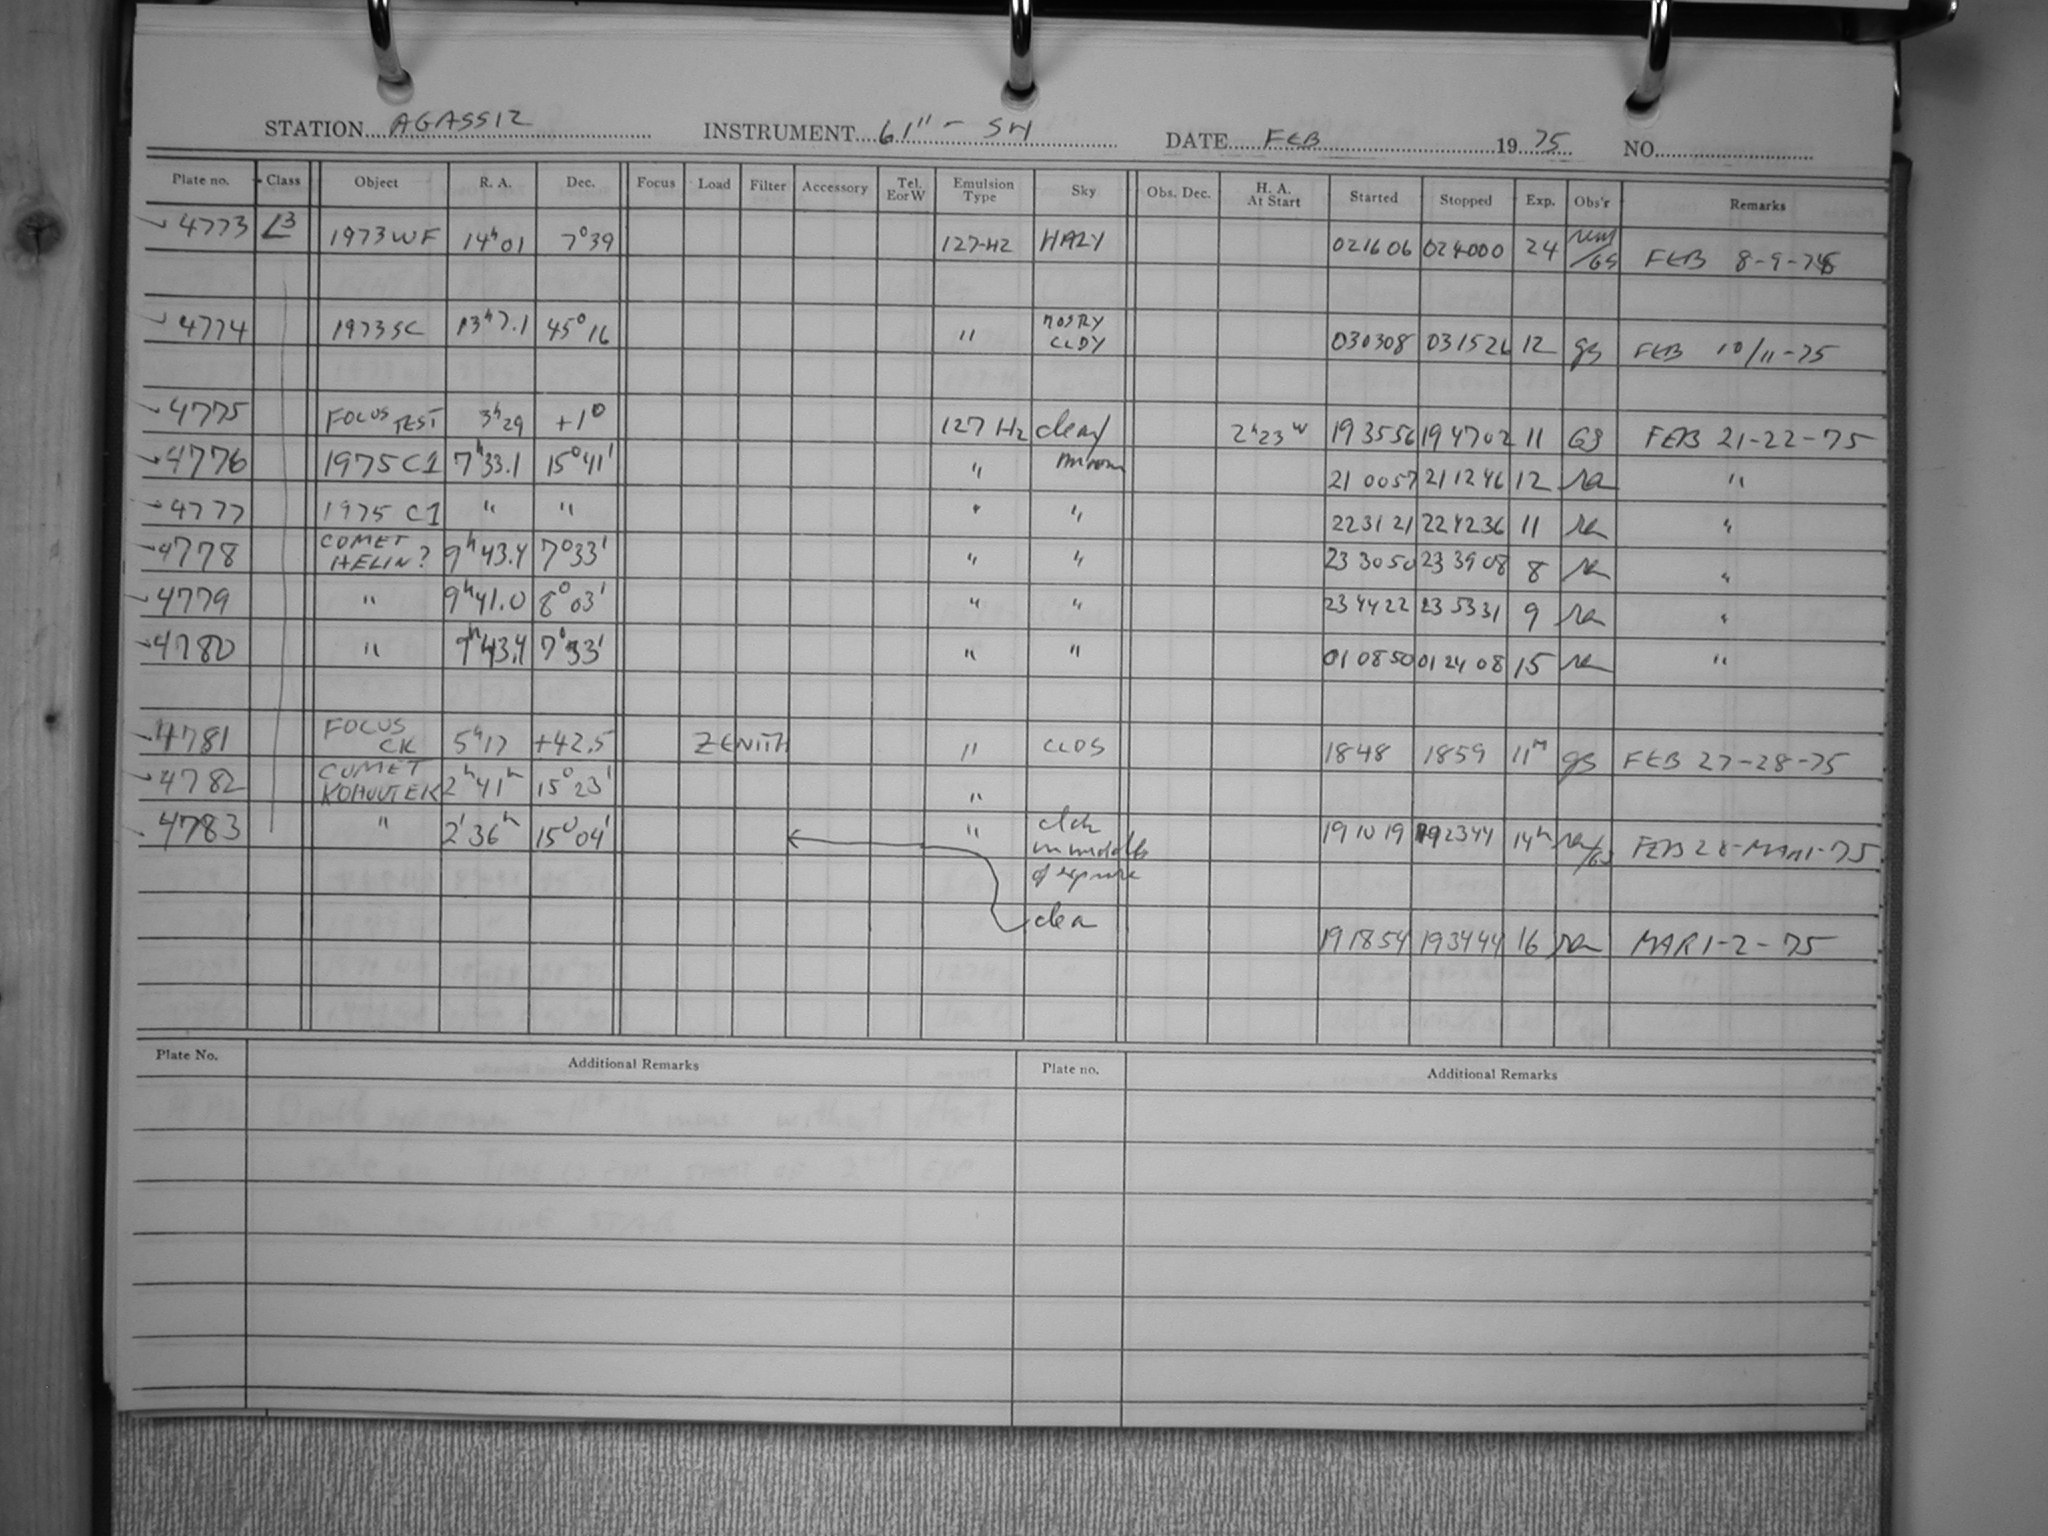 STATION AGASSIZ INSTRUMENT 61" - SH DATE FEB 1975 NO.
Plate no. Class Object R. A. Dec. Focus Load Filter Accessory Tel. E or W Emulsion Type Sky Obs. Dec. H. A. At Start Started Stopped Exp. Obs'r Remarks
4773 L3 1973WF 14h01 7°39 127-H2 HAZY 021606 024000 24 /GS FEB 8-9-75
4774 1973SC 13h7.1 45°16 " MOSTLY CLDY 030308 031526 12 gs FEB 10/11-75
4775 FOCUS TEST 3h29 +1° 127 Hz clear/ 2h23w 193556 194702 11 GS FEB 21-22-75
4776 1975C1 7h33.1 15°41' " 210057 211246 12 "
4777 1975 C1 " " " " 223121 224236 11 "
4778 COMET HELIN? 9h43.4 7°33' " " 233050 233908 8 "
4779 " 9h41.0 8°03' " " 234422 235331 9 "
4780 " 9h43.4 7°33' " " 010850 012408 15 "
4781 FOCUS CK 5h17 +42.5 ZENITH " CLDS 1848 1859 11m gs FEB 27-28-75
4782 COMET KOHOUTEK 2h41m 15°23' "
4783 " 2h36m 15°04' " clds in middle of exposure 191019 192344 14m /GS FEB 28-MAR1-75
clear 191854 193444 16 MAR 1-2-75
Plate No. Additional Remarks Plate no. Additional Remarks